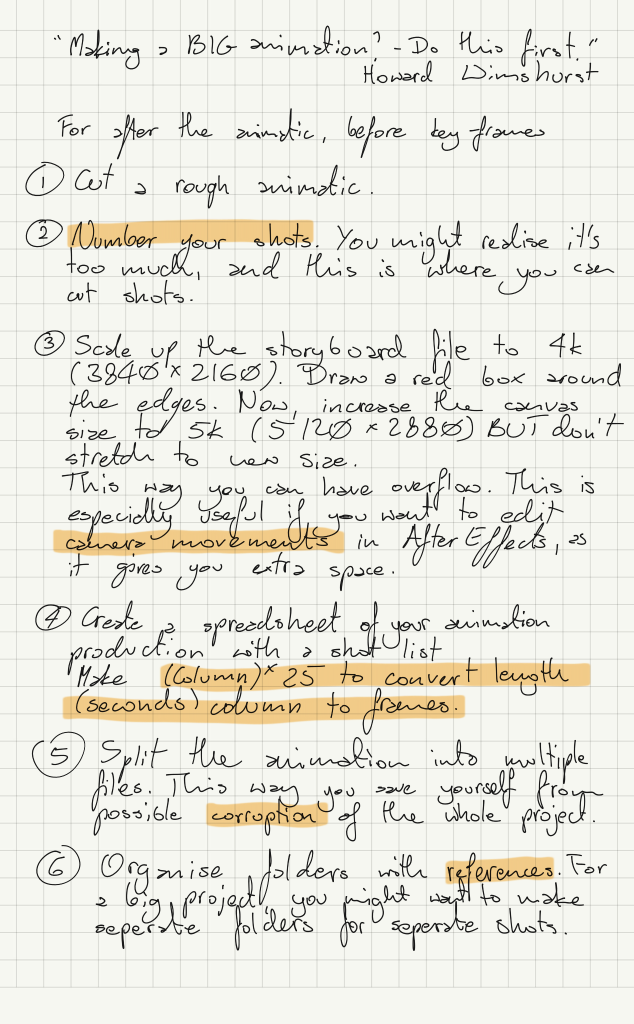 "Making a BIG animation? - Do this first."
Howard Wimshurst
For after the animatic, before key frames
1 Cut a rough animatic.
2 Number your shots. You might realise it's
too much, and this is where you can
cut shots.
3 Scale up the storyboard file to 4k
(3840 x 2160). Draw a red box around
the edges. Now, increase the canvas
size to 5k (5120 x 2880) BUT don't
stretch to new size.
This way you can have overflow. This is
especially useful if you want to edit
camera movements in After Effects, as
it gives you extra space.
4 Create a spreadsheet of your animation
production with a shot list
Make (Column) x 25 to convert length
(seconds) column to frames.
5 Split the animation into multiple
files. This way you save yourself from
possible corruption of the whole project.
6 Organise folders with references. For
a big project, you might want to make
seperate folders for seperate shots.